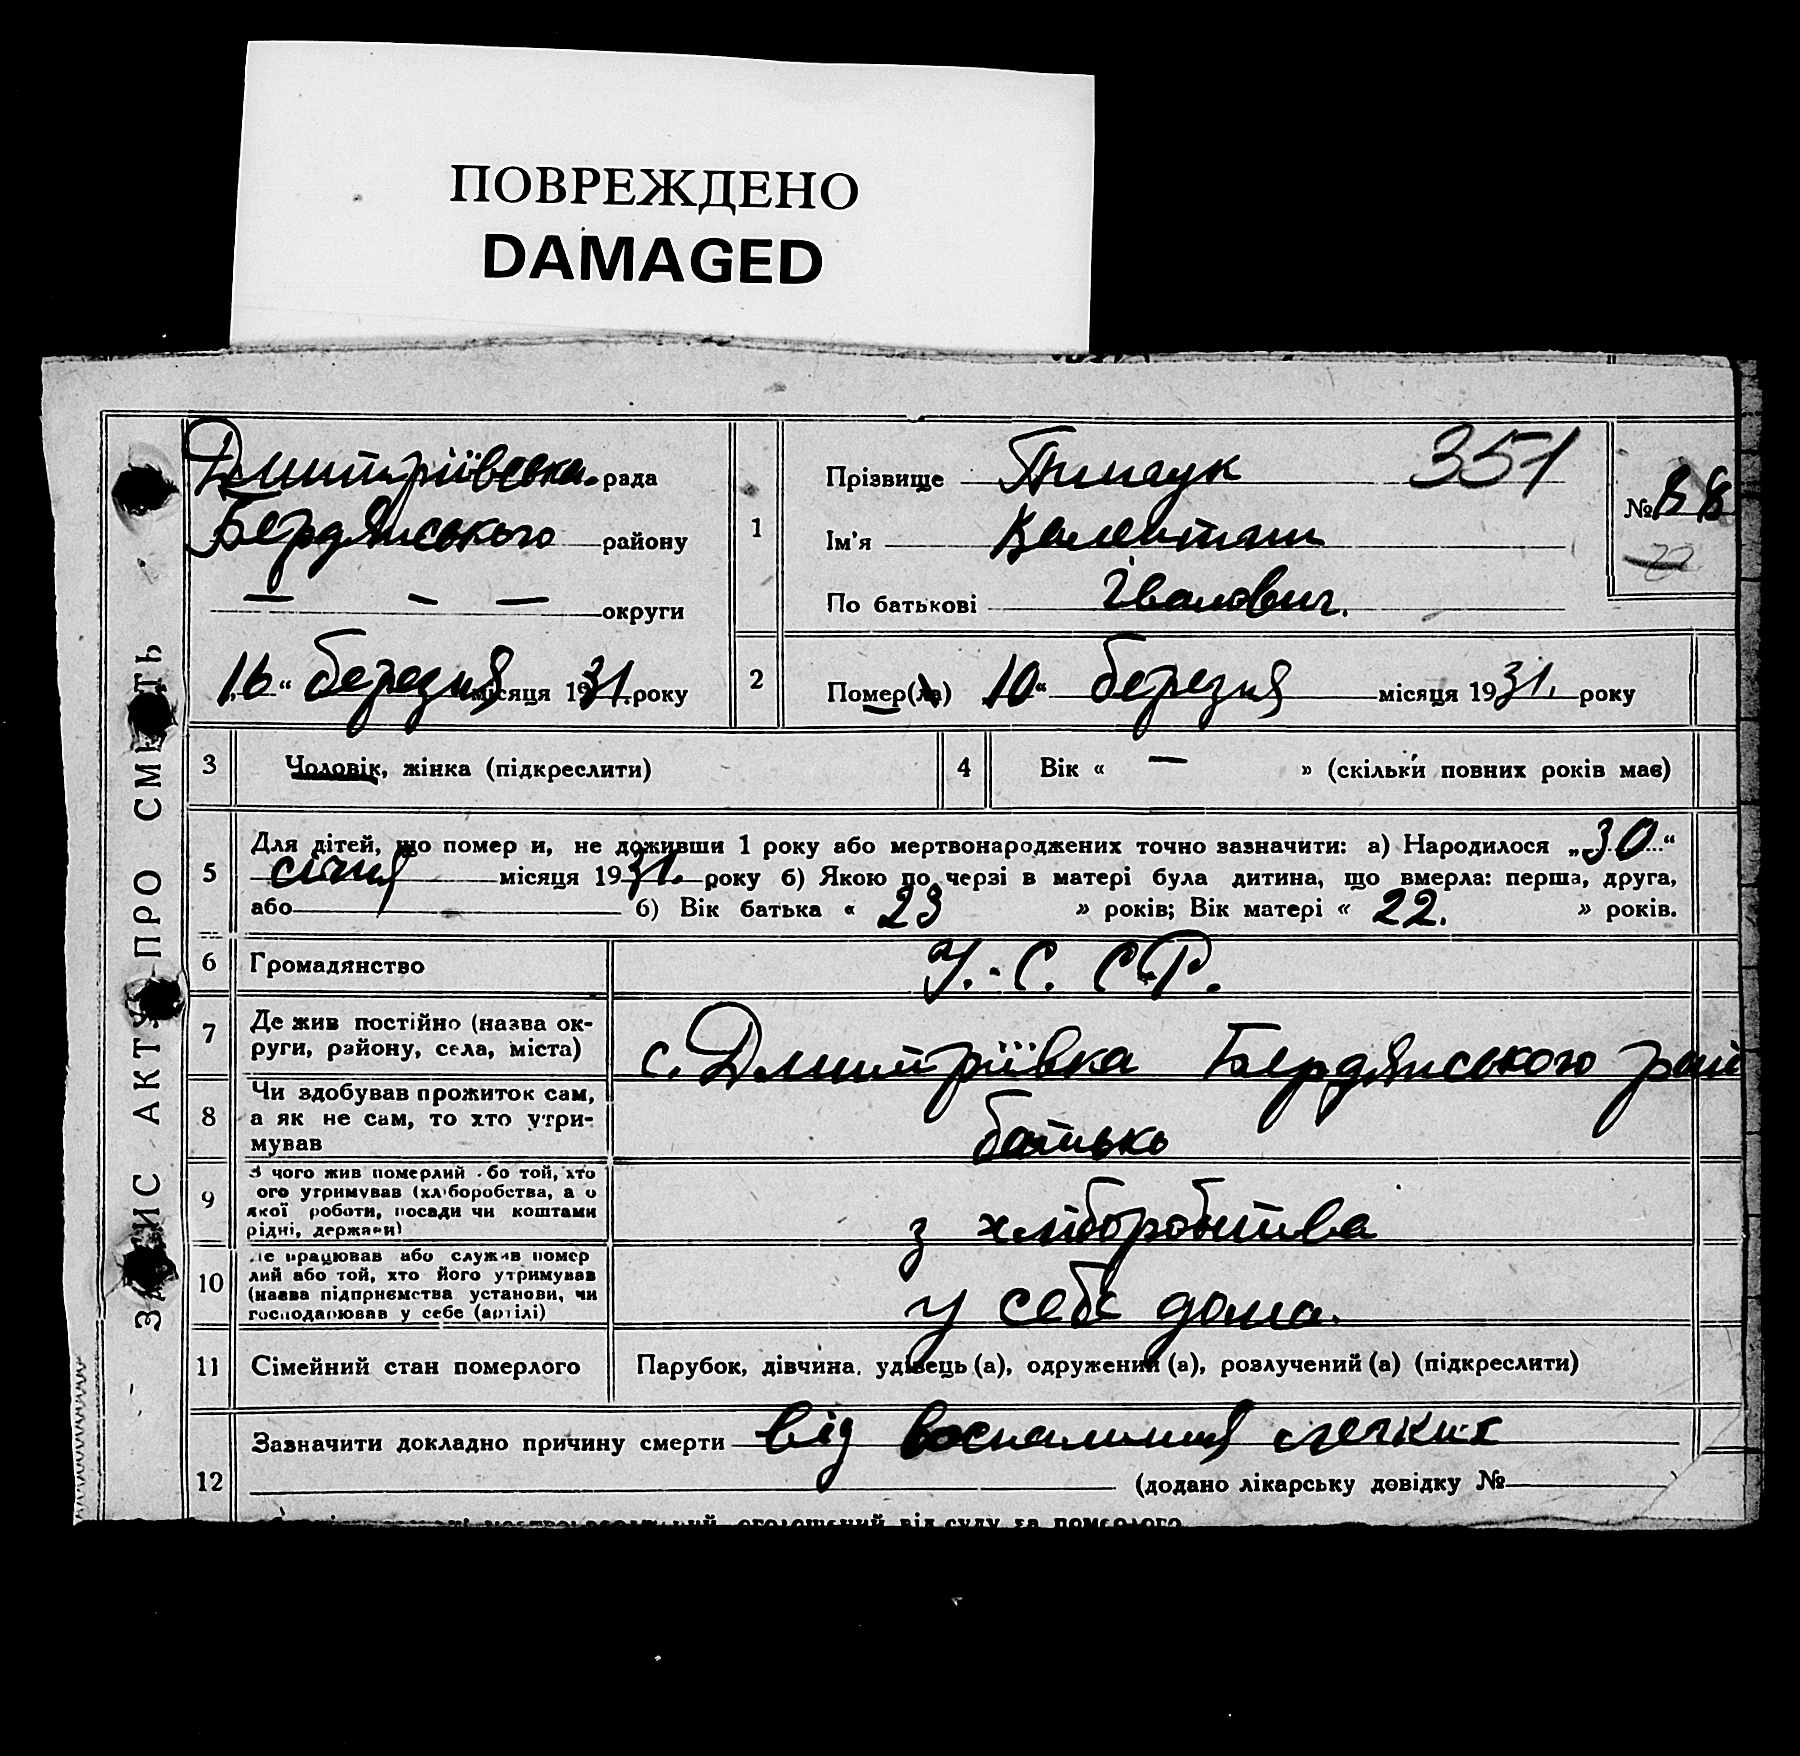 ПОВРЕЖДЕНО
DAMAGED
ЗАПИС АКТУ ПРО СМЕРТЬ
Дмитріївська рада
Бердянського району
— — — округи
„16“ березня місяця 1931. року
1
Прізвище 351
Ім'я Валентин
По батькові Іванович.
№ 88
22
2
Помер(ла) 10“ березня місяця 1931. року
3 Чоловік, жінка (підкреслити)
4 Вік « — » (скільки повних років має)
5 Для дітей, що помер и, не доживши 1 року або мертвонароджених точно зазначити: а) Народилося „30“
січня місяця 1931. року б) Якою по черзі в матері була дитина, що вмерла: перша, друга,
або — б) Вік батька « 23 » років; Вік матері « 22. » років.
6 Громадянство У. С. С. Р.
7 Де жив постійно (назва ок-
руги, району, села, міста) с. Дмитріївка Бердянського рай
8 Чи здобував прожиток сам,
а як не сам, то хто утри-
мував батько
9 З чого жив померлий або той, хто
ого утримував (хліборобства, а о
якої роботи, посади чи коштами
рідні, держави) з хліборобства
10 Де працював або служив помер
лий або той, хто його утримував
(назва підприємства установи, чи
господарював у себе (артілі) у себе дома.
11 Сімейний стан померлого Парубок, дівчина, удівець (а), одружений (а), розлучений (а) (підкреслити)
12 Зазначити докладно причину смерти від воспалиния легких
(додано лікарську довідку №
оголошений від суду за померлого